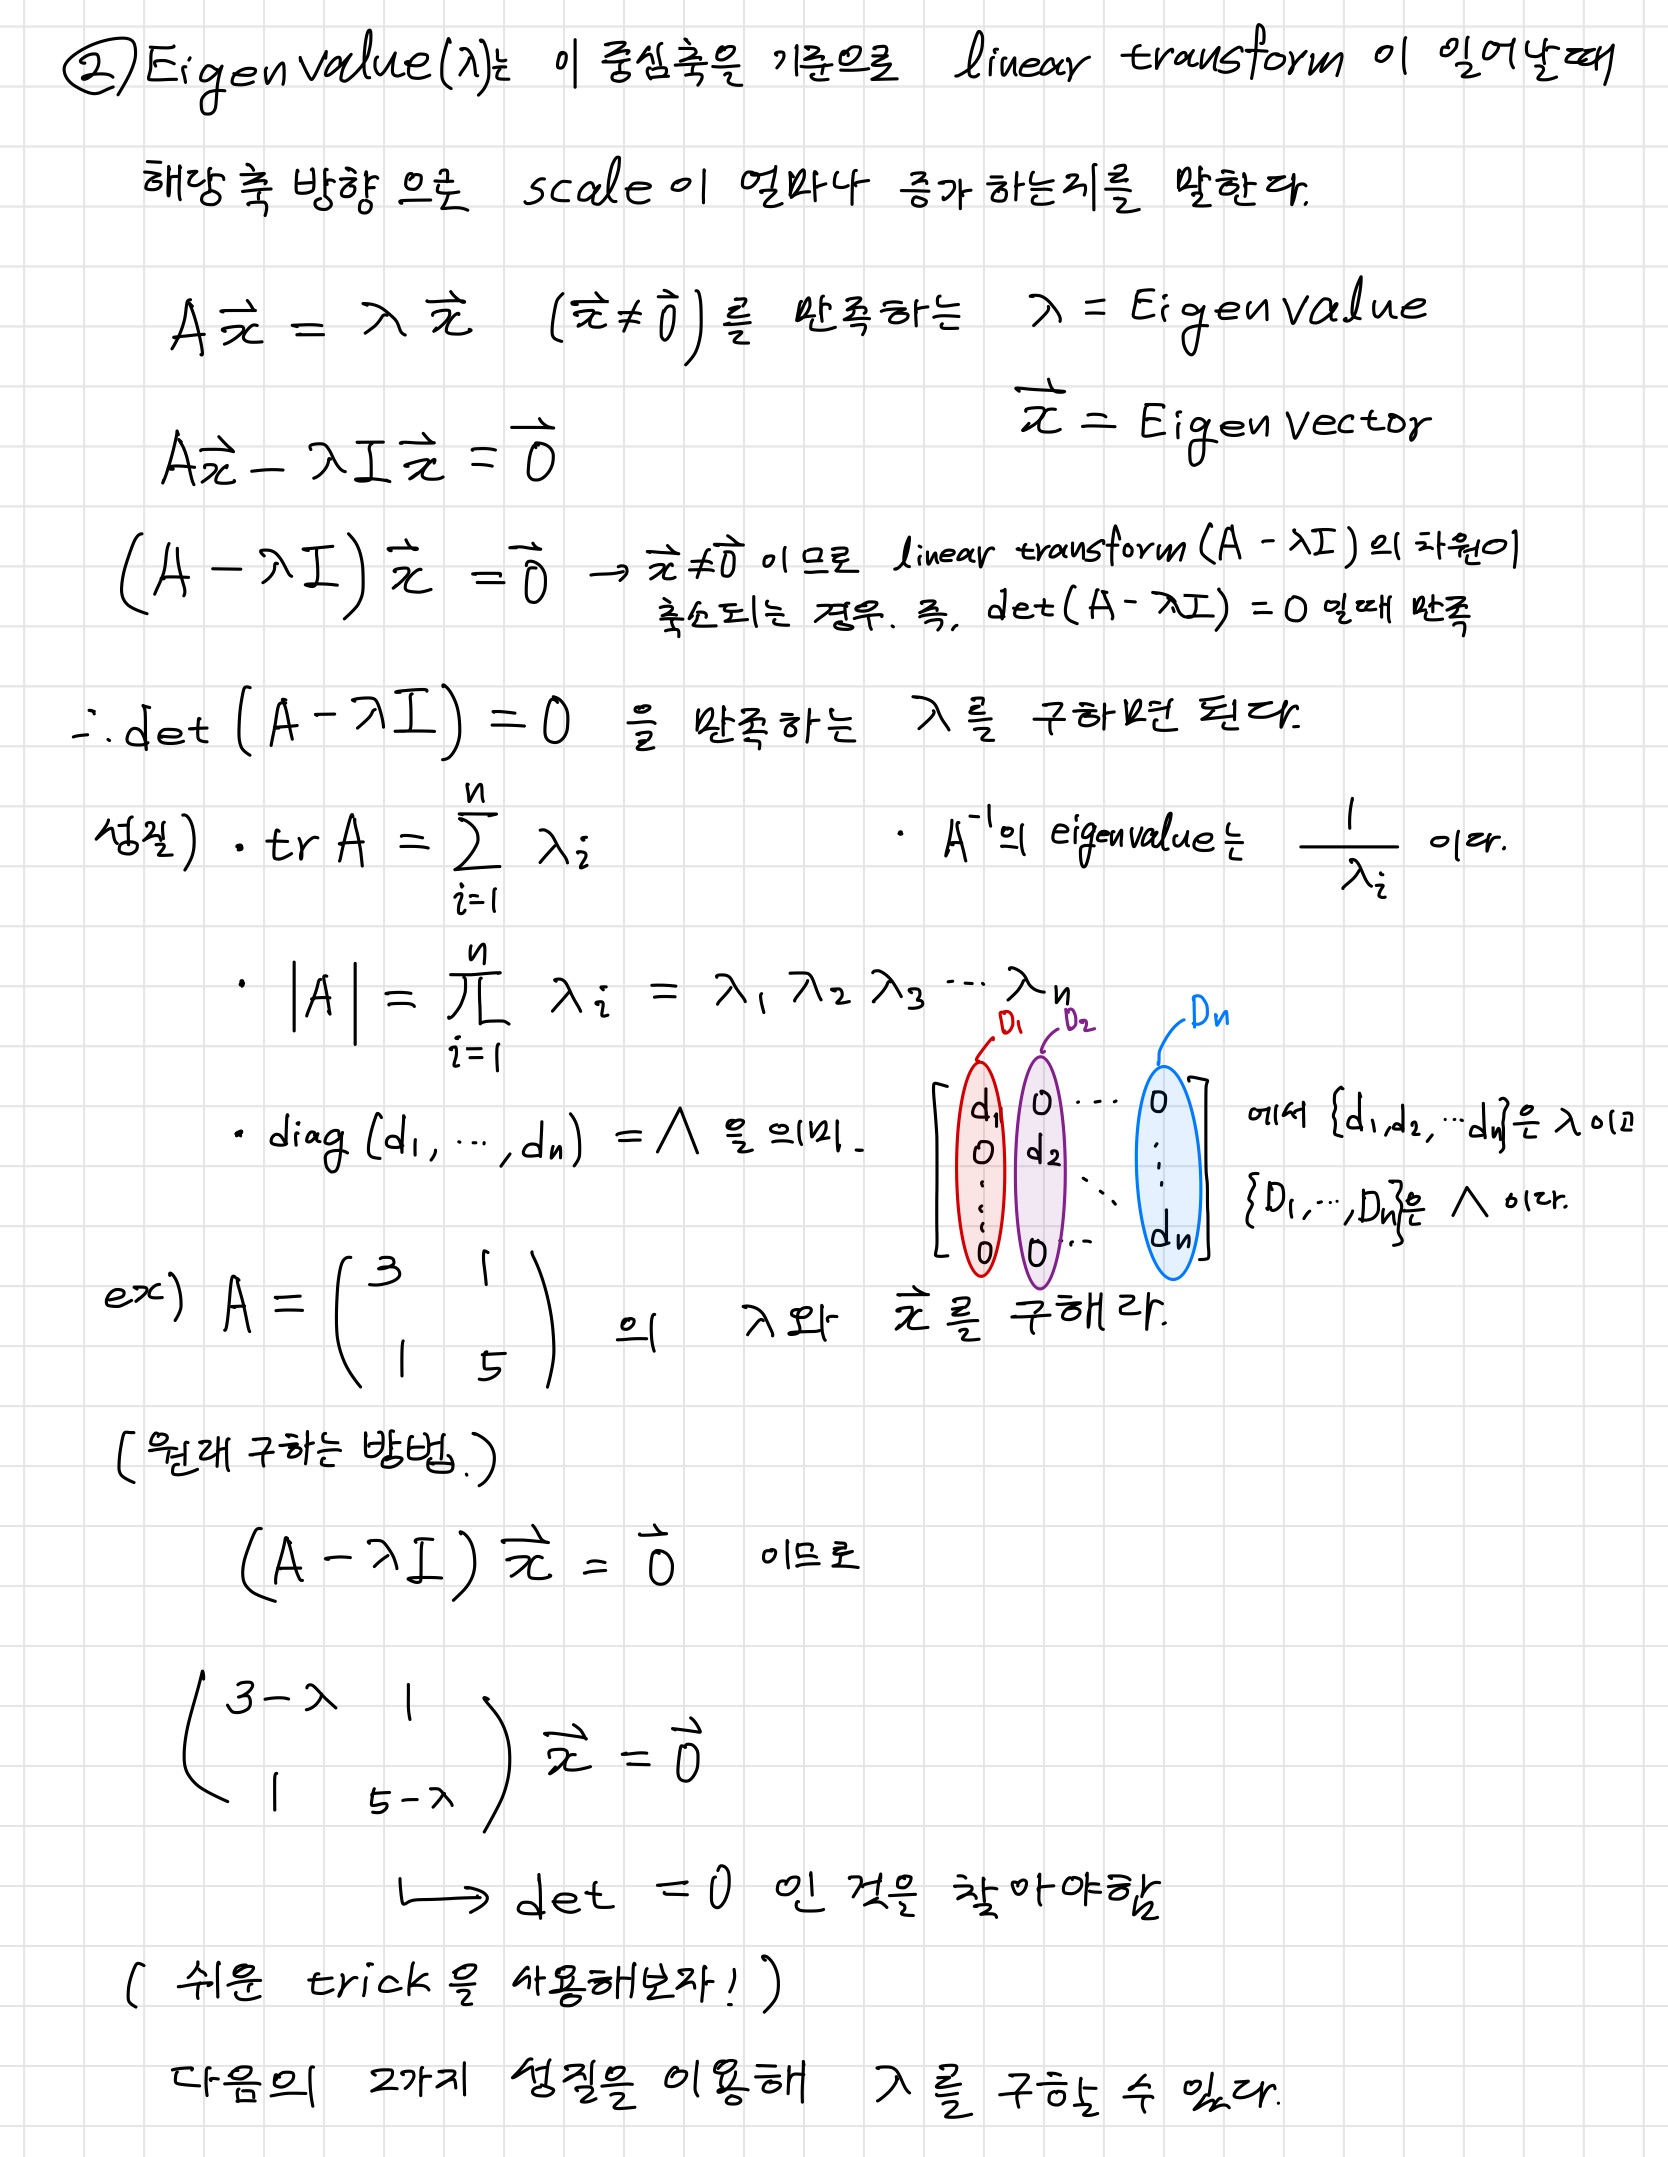 ② Eigen value(λ)는 이 중심축을 기준으로 linear transform 이 일어날때
해당 축 방향 으로 scale 이 얼마나 증가 하는지를 말한다.
Ax⃗ = λx⃗ (x⃗ ≠ 0⃗)를 만족하는 λ = Eigen value
x⃗ = Eigen vector
Ax⃗ - λIx⃗ = 0⃗
(A - λI)x⃗ = 0⃗ → x⃗ ≠ 0⃗ 이므로 linear transform (A - λI)의 차원이
축소되는 경우. 즉, det(A - λI) = 0 일때 만족
∴ det (A - λI) = 0 을 만족하는 λ를 구하면 된다.
성질) · tr A = ∑_{i=1}^{n} λi · A⁻¹의 eigen value는 1/λi 이다.
· |A| = ∏_{i=1}^{n} λi = λ1 λ2 λ3 ··· λn
D1 D2 Dn
· diag (d1, ···, dn) = Λ 을 의미.
d1 0 ··· 0
0 d2 ⋱ ⋮
⋮
0 0 ··· dn
에서 {d1, d2, ··· dn}은 λ이고
{D1, ···, Dn}은 Λ 이다.
ex) A = ( 3 1
1 5 ) 의 λ와 x⃗를 구해라.
(원래 구하는 방법.)
(A - λI) x⃗ = 0⃗ 이므로
( 3-λ 1
1 5-λ ) x⃗ = 0⃗
↳ det = 0 인 것을 찾아야함
( 쉬운 trick을 사용해보자! )
다음의 2가지 성질을 이용해 λ를 구할 수 있다.